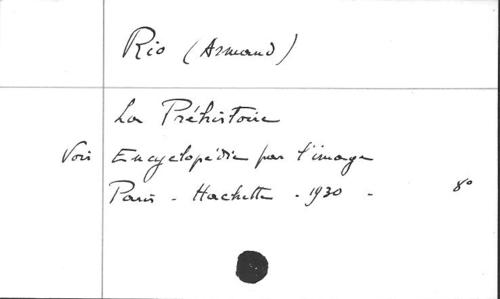 Rio (Armand)
La Préhistoire
Voir Encyclopédie par l'image
Paris - Hachette - 1930 - 8°